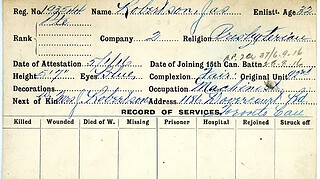 Reg. No. Name Robertson, Jas Enlist. Age 22
Pte
Rank Company 2 Religion Presbyterian
Date of Attestation Date of Joining 15th Can. Battn
Height Eyes Blue Complexion Fair Original Unit
Decorations Occupation Machinist
Next of Kin Mrs Robertson Address Dovercourt Rd
Toronto Can
RECORD OF SERVICES.
Killed Wounded Died of W. Missing Prisoner Hospital Rejoined Struck off